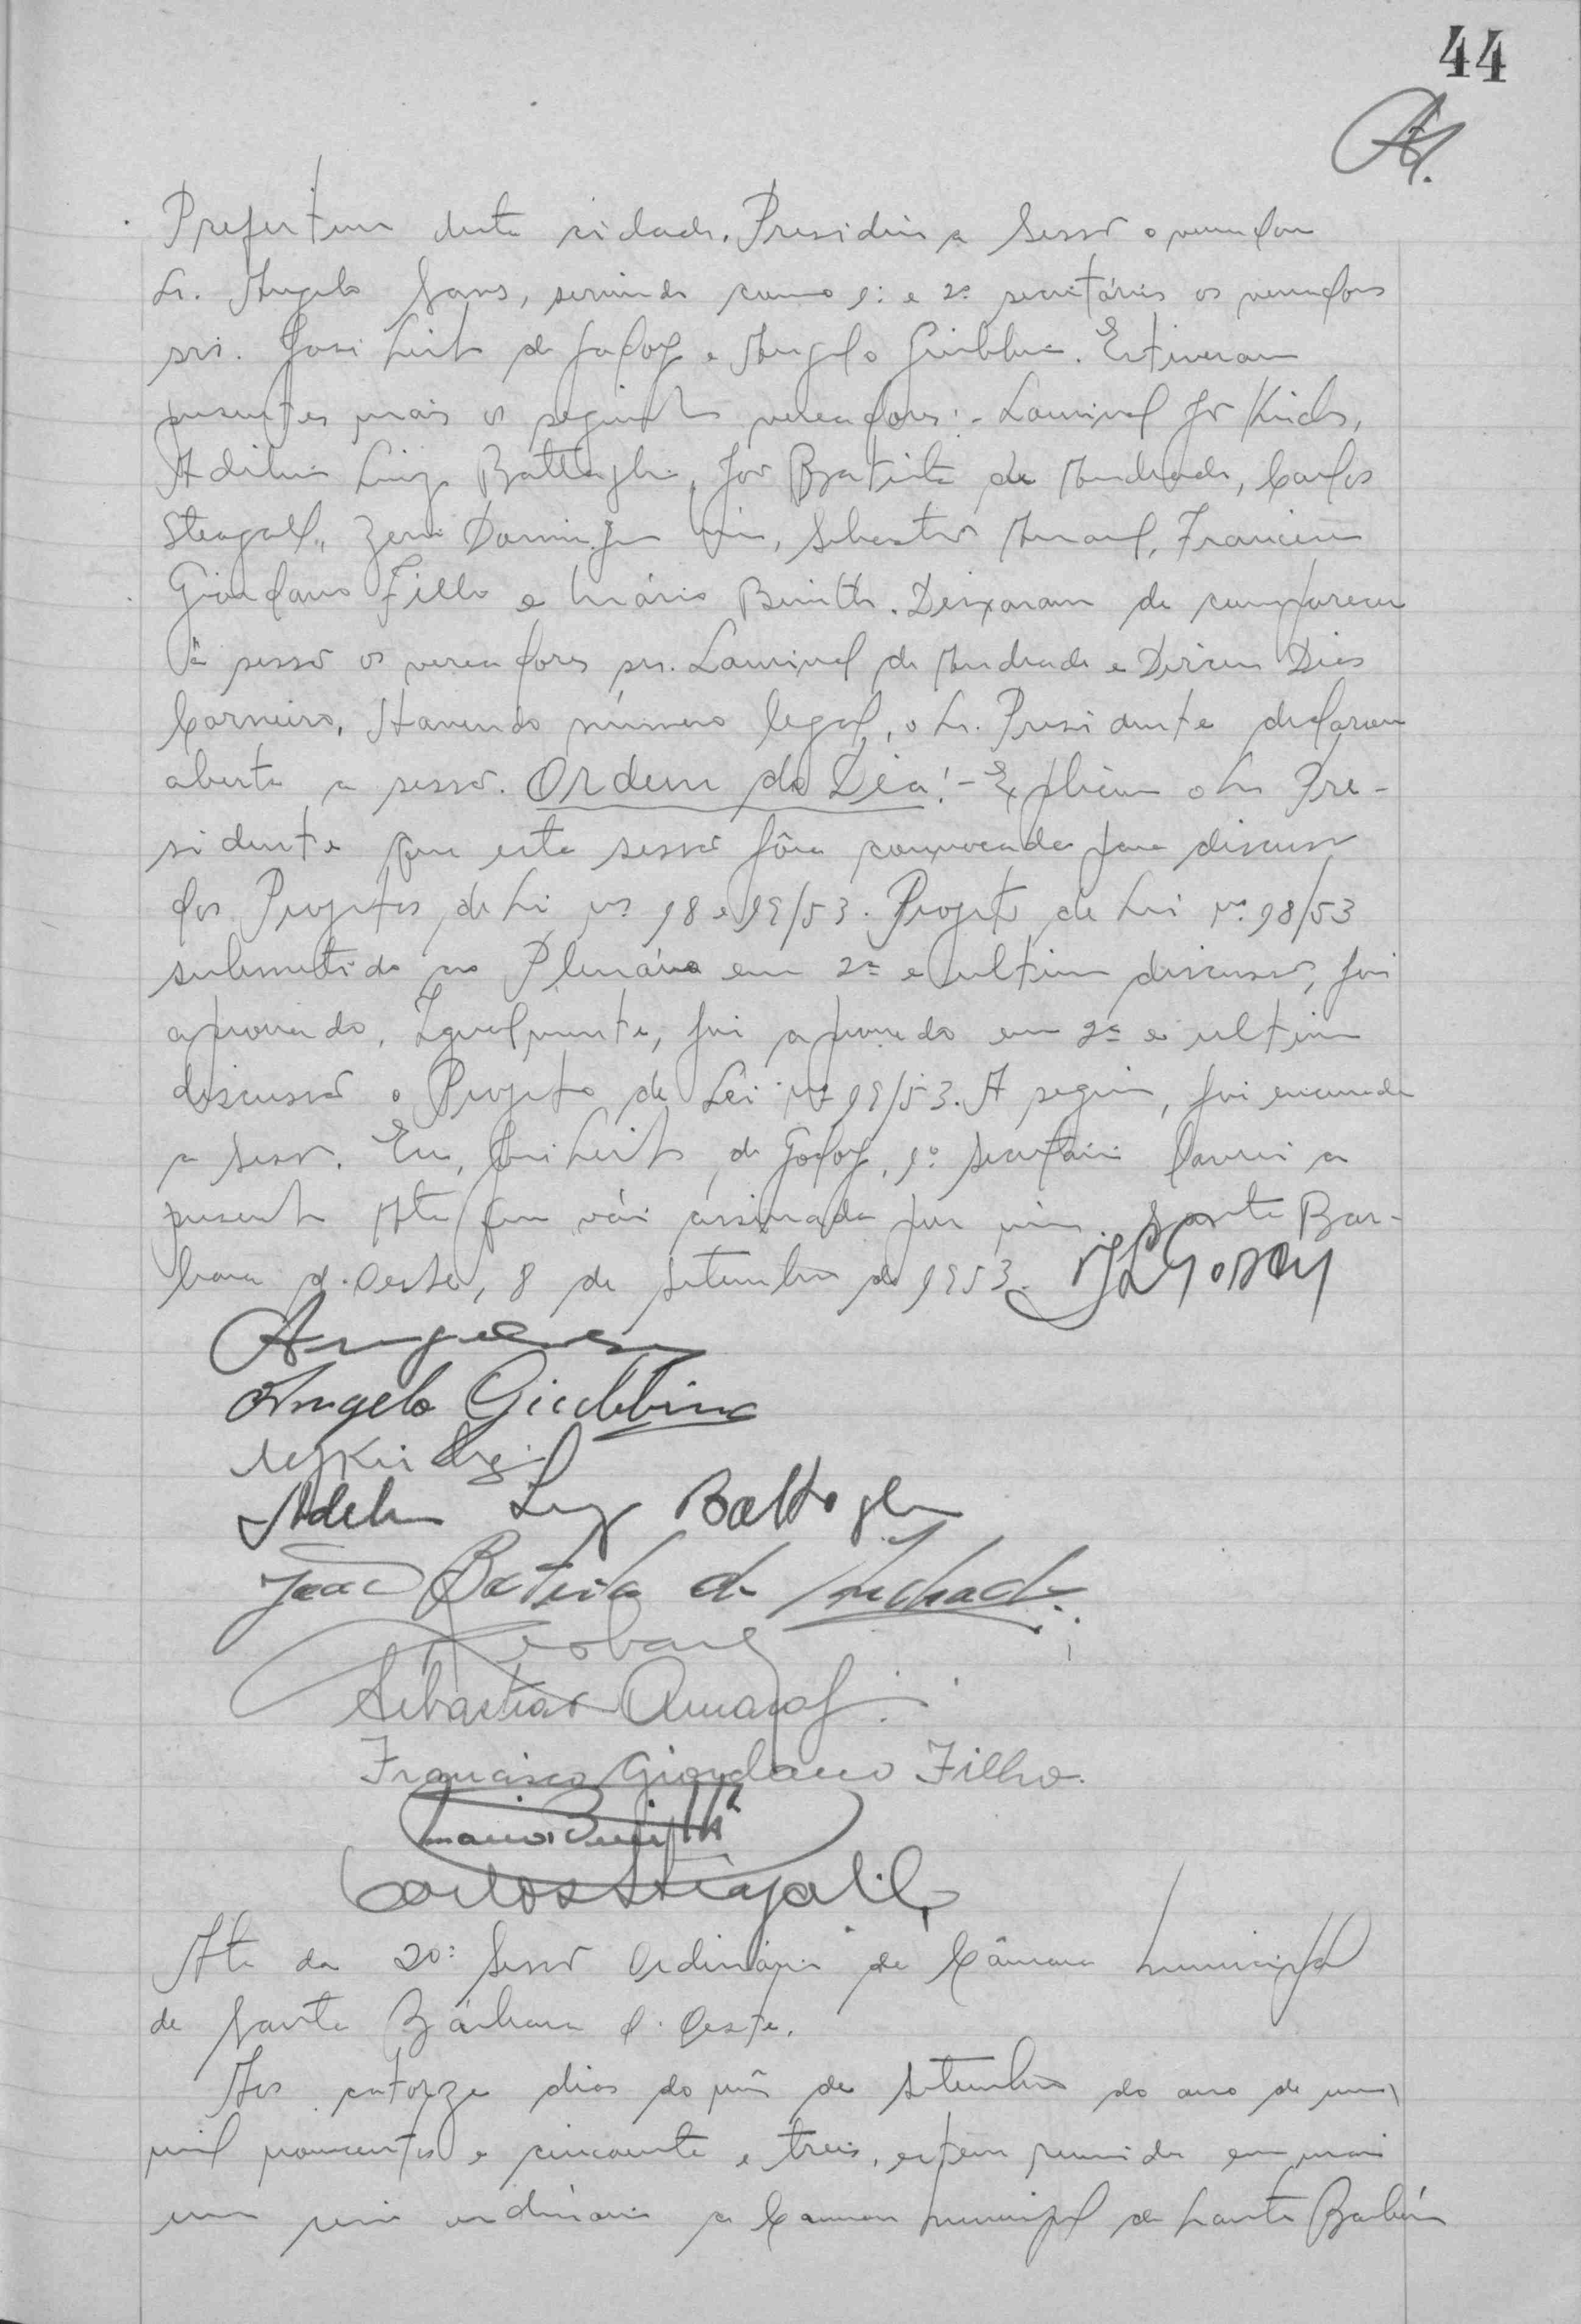 44
Prefeitura desta cidade. Presidiu a sessão o vereador
Sr. Angelo Sans, servindo como 1º e 2º secretários os vereadores
srs. José Leite de Godoy e Angelo Giubbina. Estiveram
presentes mais os seguintes vereadores:- Lourival
Adelino Luiz Battaglia, João Batista de Andrade, Carlos
Steagall, Domingos, Sebastião Amaral, Francisco
Giordano Filho e Mário Benitti. Deixaram de comparecer
à sessão os vereadores srs. Lourival de Andrade e Dirceu Dias
Carneiro. Havendo número legal, o Sr. Presidente declarou
aberta a sessão. Ordem do Dia:- Explicou o Sr. Pre-
sidente que esta sessão fôra convocada para discussão
dos Projetos de Lei nºs 18 e 19/53. Projeto de Lei nº 18/53
submetido ao Plenário em 2ª e ultima discussão, foi
aprovado. Igualmente, foi aprovado em 2ª e ultima
discussão o Projeto de Lei nº 19/53. A seguir, foi encerrada
a sessão. Eu, José Leite de Godoy, 1º secretário lavrei a
presente Ata que vái assinada por mim. Santa Bar-
bara d'Oeste, 8 de setembro de 1953. JLGodoy
Angelo Giubbina
Adelino Luiz Battaglia
João Batista de Andrade
Sebastião Amaral
Francisco Giordano Filho
Mario Benitti
Carlos Steagall
Ata da 20ª Sessão Ordinária da Câmara Municipal
de Santa Bárbara d'Oeste.
Aos catorze dias do mês de setembro do ano de um
mil novecentos e cincoenta e treis, esteve reunida em mais
uma ordinária a Camara Municipal de Santa Barbára